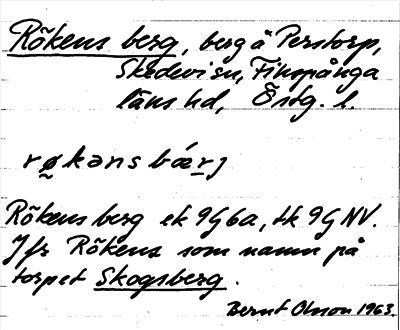 Rökens berg, berg å Perstorp,
Skedevi sn, Finspånga
läns hd, Östg. l.
røkənsbærj
Rökens berg ek 9G6a, tk 9G NV.
Jfr Rökens som namn på
torpet Skogsberg.
Bernt Olsson 1963.